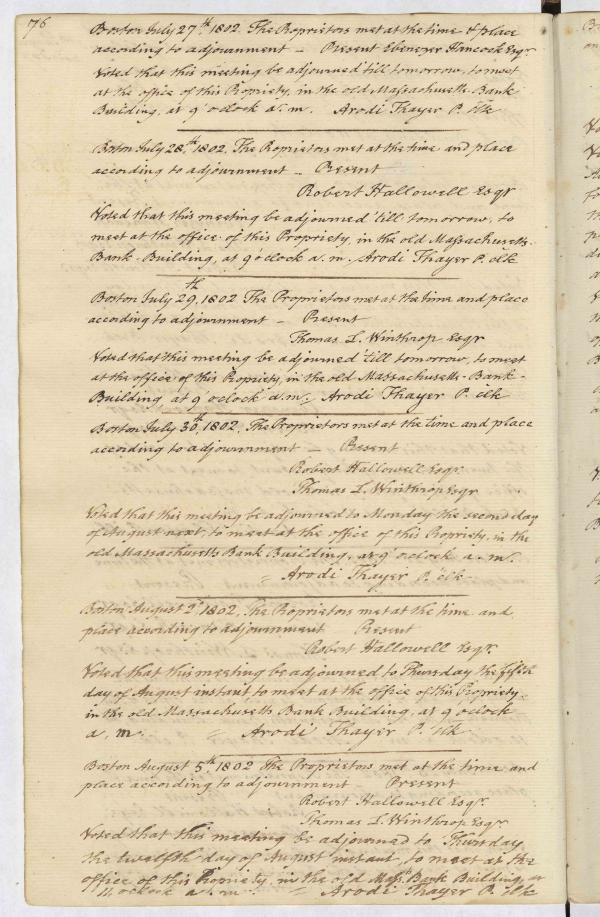 76
Boston July 27th 1802. The Proprietors met at the time & place
according to adjournment — Present Ebenezer Hancock Esqr
Voted that this meeting be adjourned till tomorrow, to meet
at the office of this Propriety, in the old Massachusetts Bank
Building, at 9 o'clock a. m. Arodi Thayer P. Clk
Boston July 28th 1802. The Proprietors met at the time and place
according to adjournment — Present
Robert Hallowell Esqr
Voted that this meeting be adjourned till tomorrow, to
meet at the office of this Propriety, in the old Massachusetts-
Bank-Building, at 9 o'clock a. m. Arodi Thayer P. Clk
Boston July 29th, 1802 The Proprietors met at the time and place
according to adjournment — Present
Thomas L. Winthrop Esqr
Voted that this meeting be adjourned till tomorrow, to meet
at the office of this Propriety, in the old Massachusetts-Bank-
Building at 9 o'clock a. m. Arodi Thayer P. Clk
Boston July 30th 1802. The Proprietors met at the time and place
according to adjournment — Present
Robert Hallowell Esqr.
Thomas L. Winthrop Esqr
Voted that this meeting be adjourned to Monday the second day
of August next, to meet at the office of this Propriety, in the
old Massachusetts Bank Building, at 9 o'clock a. m.
Arodi Thayer P. Clk
Boston August 2d 1802. The Proprietors met at the time and
place according to adjournment Present
Robert Hallowell Esqr.
Voted that this meeting be adjourned to Thursday the fifth
day of August instant to meet at the office of this Propriety,
in the old Massachusetts Bank Building, at 9 o'clock
a. m. Arodi Thayer P. Clk
Boston August 5th 1802 The Proprietors met at the time and
place according to adjournment — Present
Robert Hallowell Esqr.
Thomas L. Winthrop Esqr.
Voted that this meeting be adjourned to Thursday
the twelfth day of August instant, to meet at the
office of this Propriety, in the old Massts Bank Building, at
11 o'clock a. m. Arodi Thayer P. Clk